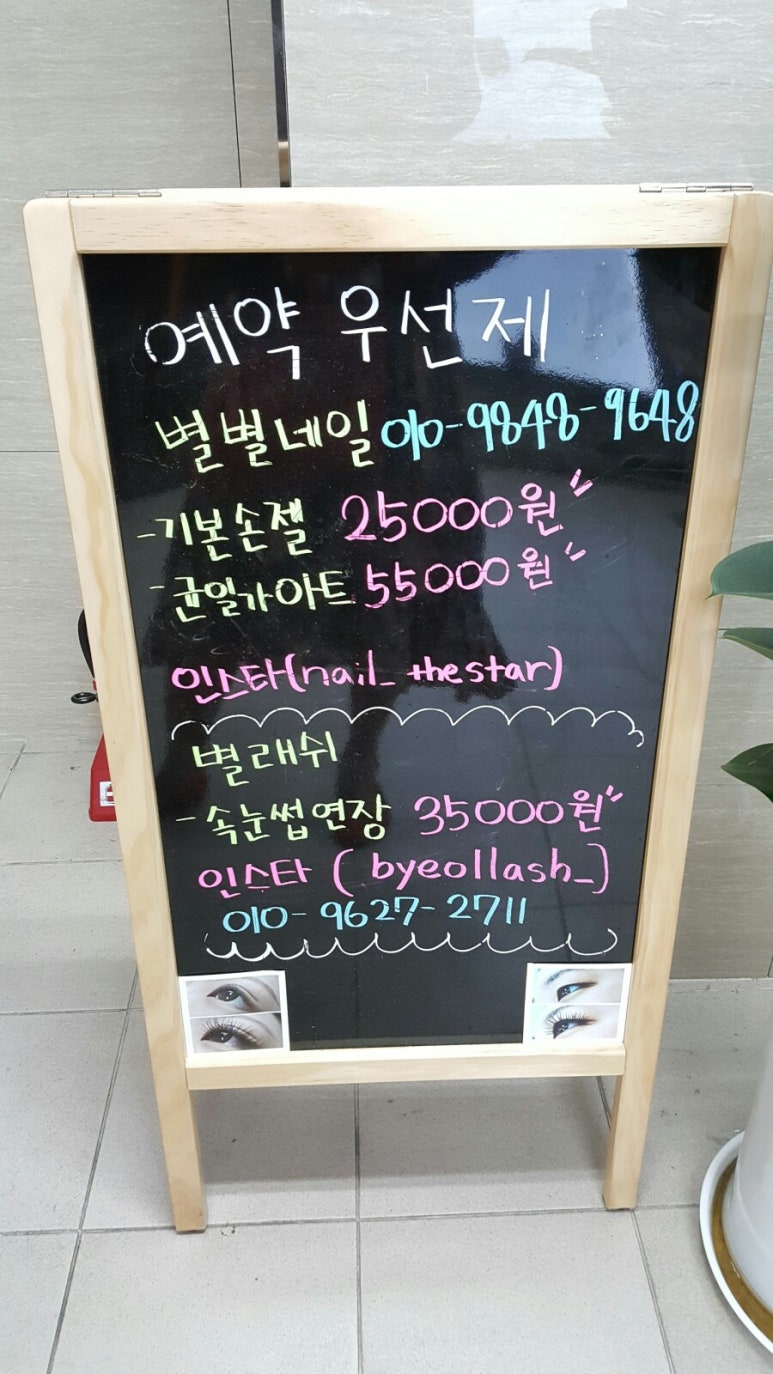 예약 우선제
별별네일 010-9848-9648
-기본손젤 25000원〃
-균일가아트 55000원〃
인스타(nail_thestar)
별래쉬
-속눈썹연장 35000원〃
인스타 (byeollash_)
010-9627-2711